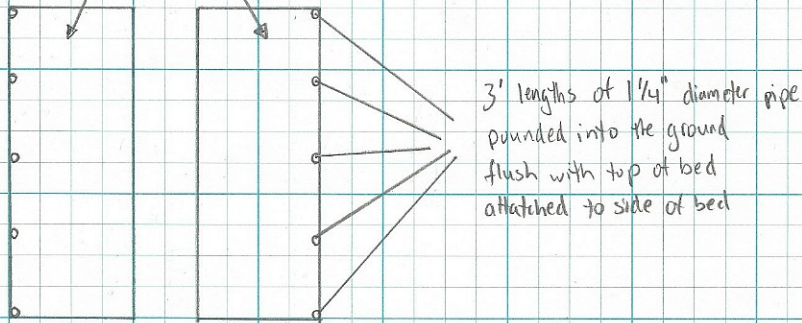 3' lengths of 1 1/4" diameter pipe
pounded into the ground
flush with top of bed
attatched to side of bed